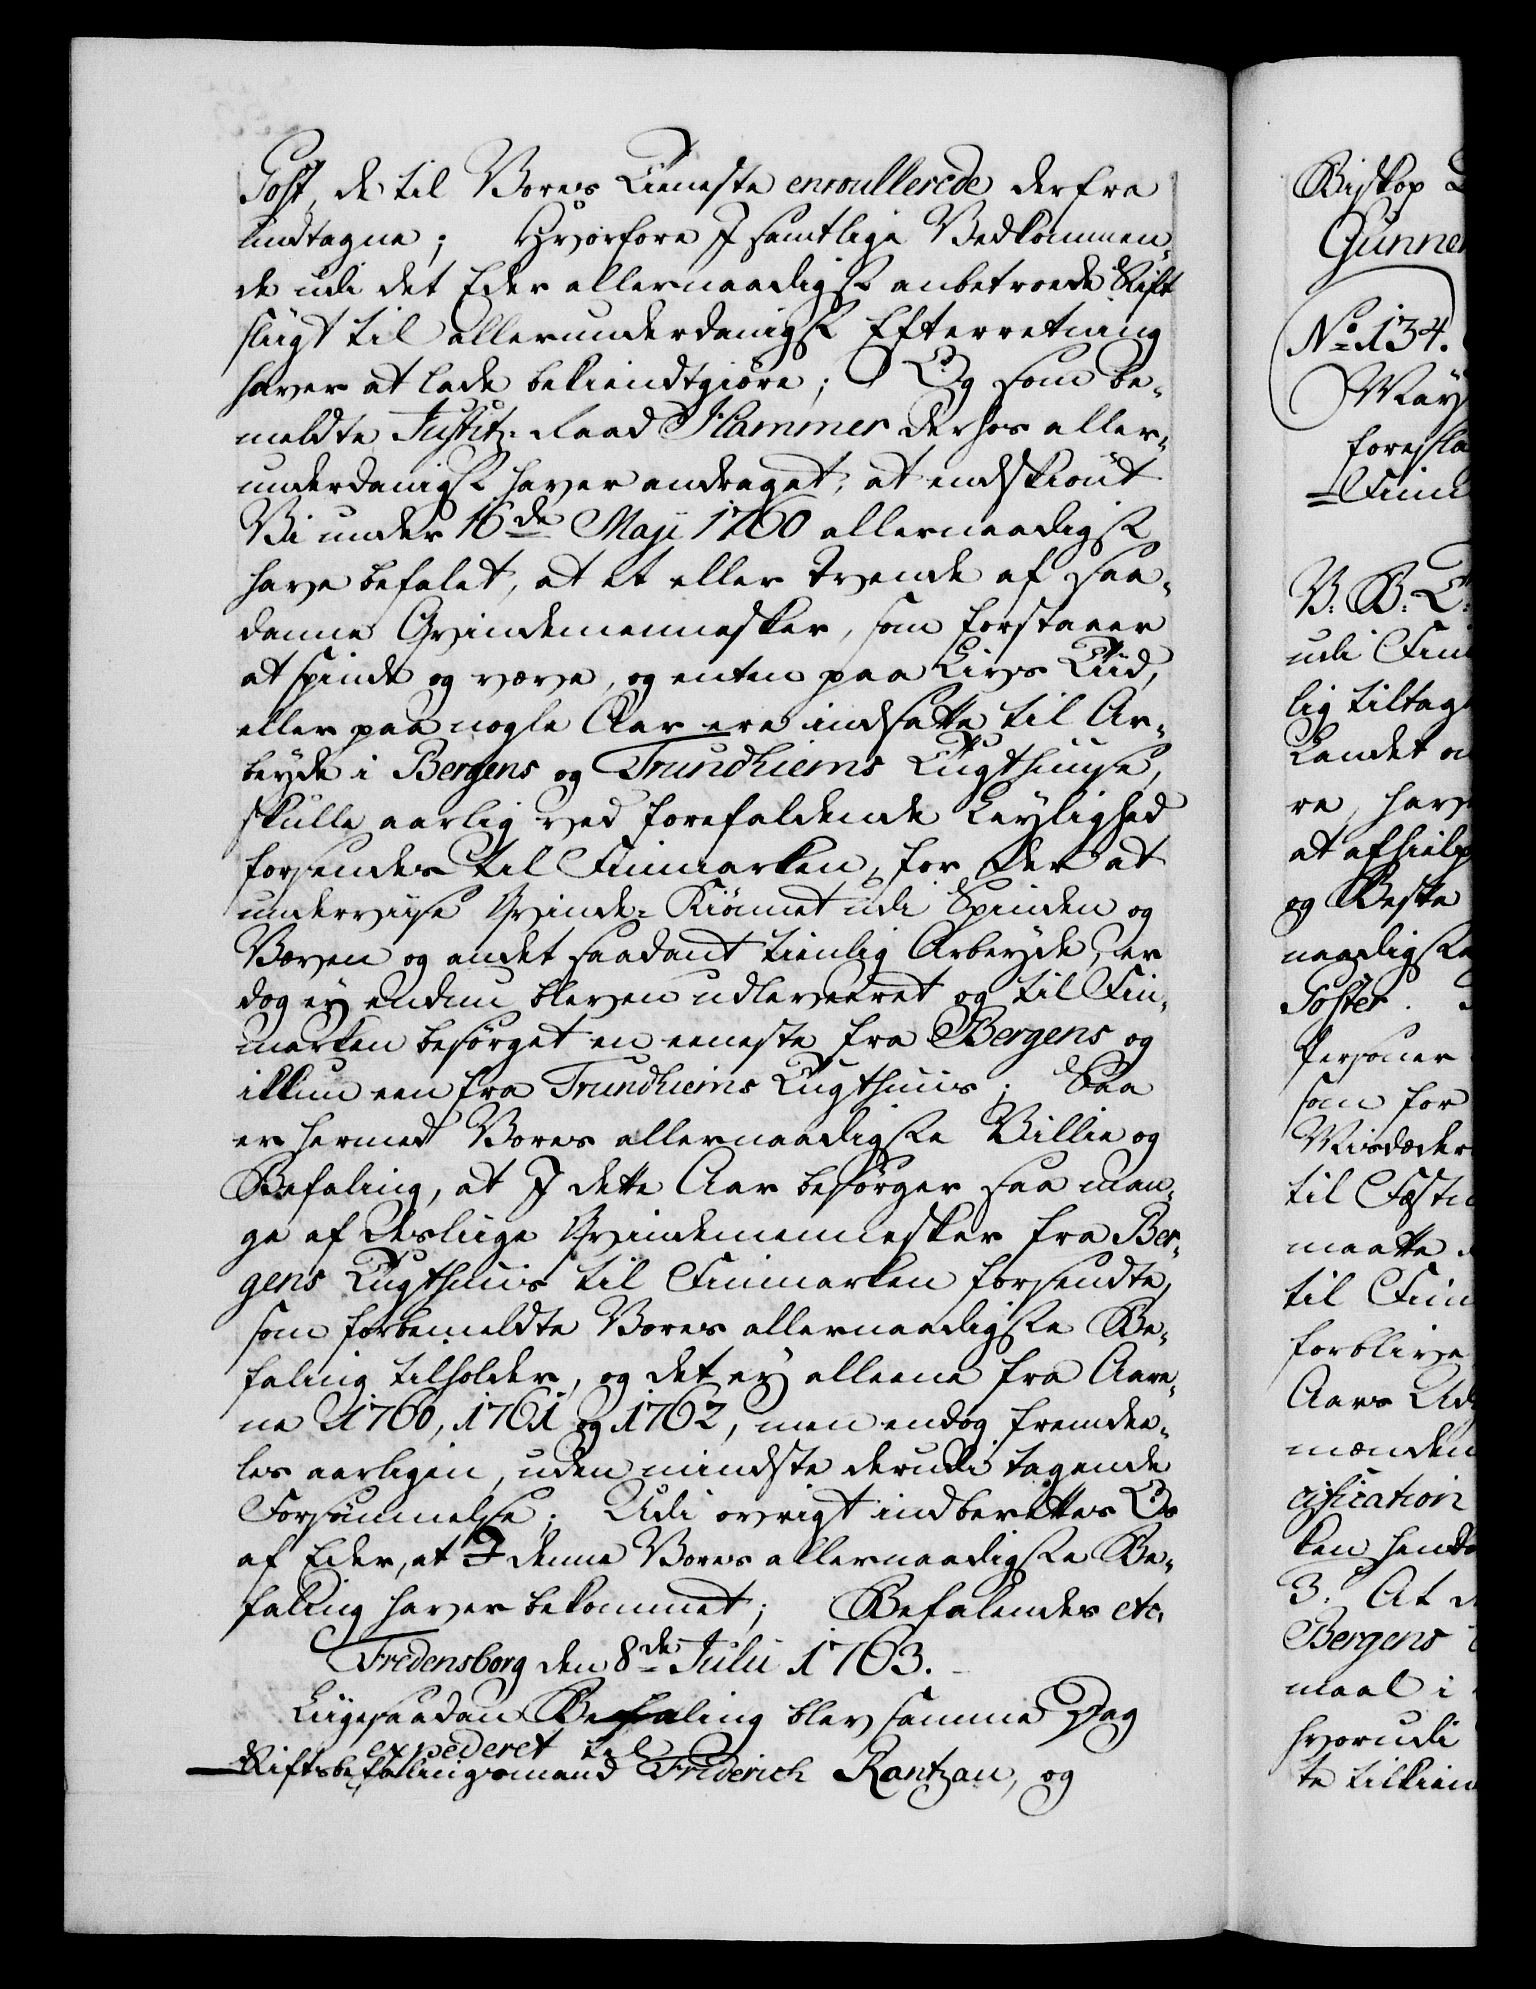 Post, de til Vores Tieneste enroullerede derfra
undtagne; Hvorfore I samtlige Vedkommen-
de udi det Eder allernaadigst anbetroede Stift
sligt til allerunderdanigst Efterretning
haver at lade bekiendtgiøre; Og som be-
meldte Justitz-Raad Hammer derhos aller-
underdanigst haver andraget, at endskiønt
Vi under 16de Maji 1760 allernaadigst
have befalet, at et eller tvende af saa-
danne Qvindemennesker, som forstaaer
at spinde og væve, og enten paa Livs Tiid,
eller paa nogle Aar ere indsatte til Ar-
beyde i Bergens og Trundhiems Tugthuuse,
skulle aarlig ved forefaldende Leylighed
forsendes til Finmarken, for der at
underviise Qvinde-Kiønnet udi Spinden og
Væven og andet saadant tienlig Arbeyde, er
dog ey endnu bleven udleveeret og til Fin-
marken besørget en eeneste fra Bergens og
ikkun een fra Trundhiems Tugthuus; Saa
er hermed Vores allernaadigste Villie og
Befaling, at I dette Aar besørger saa man-
ge af desliige Qvindemennesker fra Ber-
gens Tugthuus til Finmarken forsendte,
som forbemeldte Vores allernaadigste Be-
faling tilholder, og det ey alleene fra Aare-
ne 1760, 1761 og 1762, men endog fremdee-
les aarligen, uden mindste derudi tagende
Forsømmelse; Udi øvrigt indberettes Os
af Eder, at I denne Vores allernaadigste Be-
faling haver bekommet; Befalendes etc.
Fredensborg den 8de Julii 1763.
Liigesaadan Befaling blev samme Dag
expederet til
Stiftsbefalingsmand Friderich Rantzau, og
Biskop
Gunner
No 134.
foresla
V: B: T:
udi Fin
lig tiltag
Landet o
re, hav
at afhielp
og Beste
naadigste
Poster.
Personer
som for
Misdæder
til Fæstn
maatte
til Fin
forblive
Aars
mænden
cification
ken hend
3. At d
Bergens
maal i
hvorudi
te tilkien